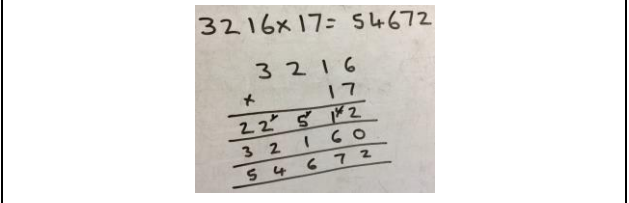 3216x17= 54672
3 2 1 6
x 17
2 2 5 1 2
3 2 1 6 0
5 4 6 7 2